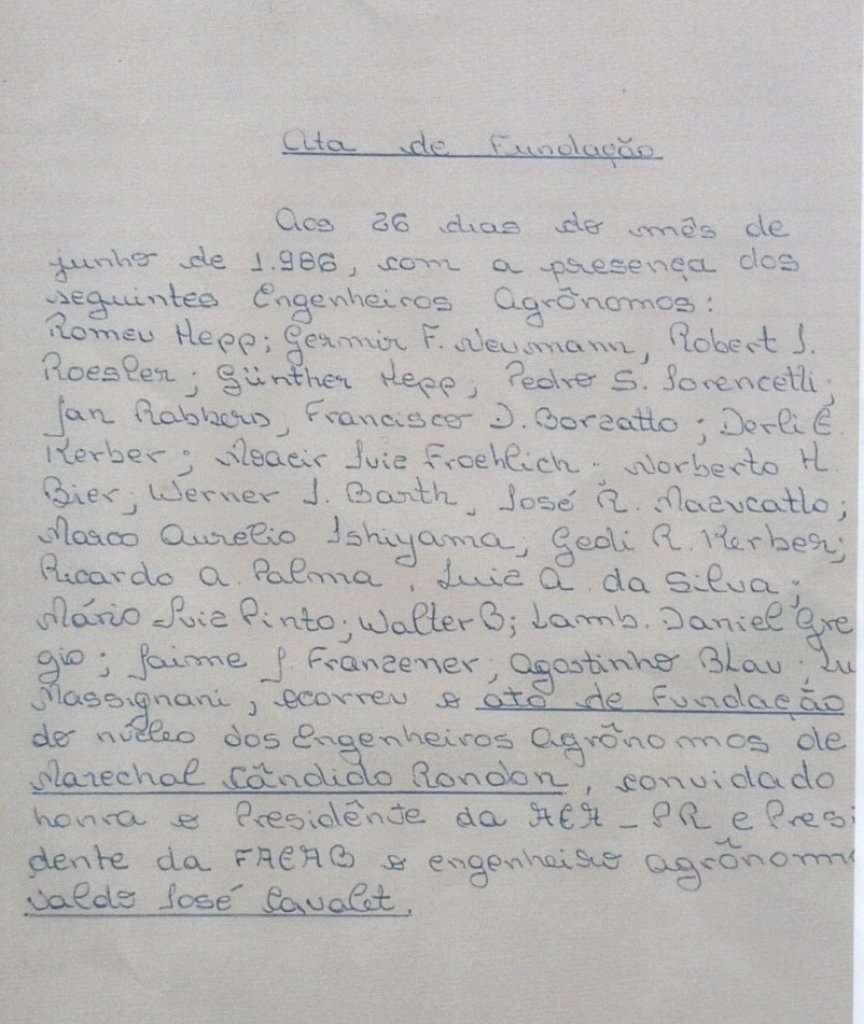 Ata de Fundação
Aos 26 dias do mês de
junho de 1.986, com a presença dos
seguintes Engenheiros Agrônomos:
Romeu Hepp; Germir F. Neumann, Robert J.
Roesler; Günther Hepp, Pedro S. Lorencetti;
Jan Rabbers, Francisco D. Borzatto; Derli E.
Kerber; Moacir Luiz Froehlich; Norberto H.
Bier; Werner J. Barth, José R. Mazucatto;
Marco Aurélio Ishiyama; Gedi R. Kerber;
Ricardo A. Palma, Luiz A. da Silva;
Mário Luiz Pinto; Walter B; Lamb. Daniel Gre
gio; Jaime J. Franzener; Agostinho Blau; Lu
Massignani, ocorreu o ato de Fundação
do núcleo dos Engenheiros Agrônomos de
Marechal Cândido Rondon, convidado
honra o Presidênte da AEA - PR e Presi
dente da FAEAB o engenheiro agrônom
Valdo José Cavalet.